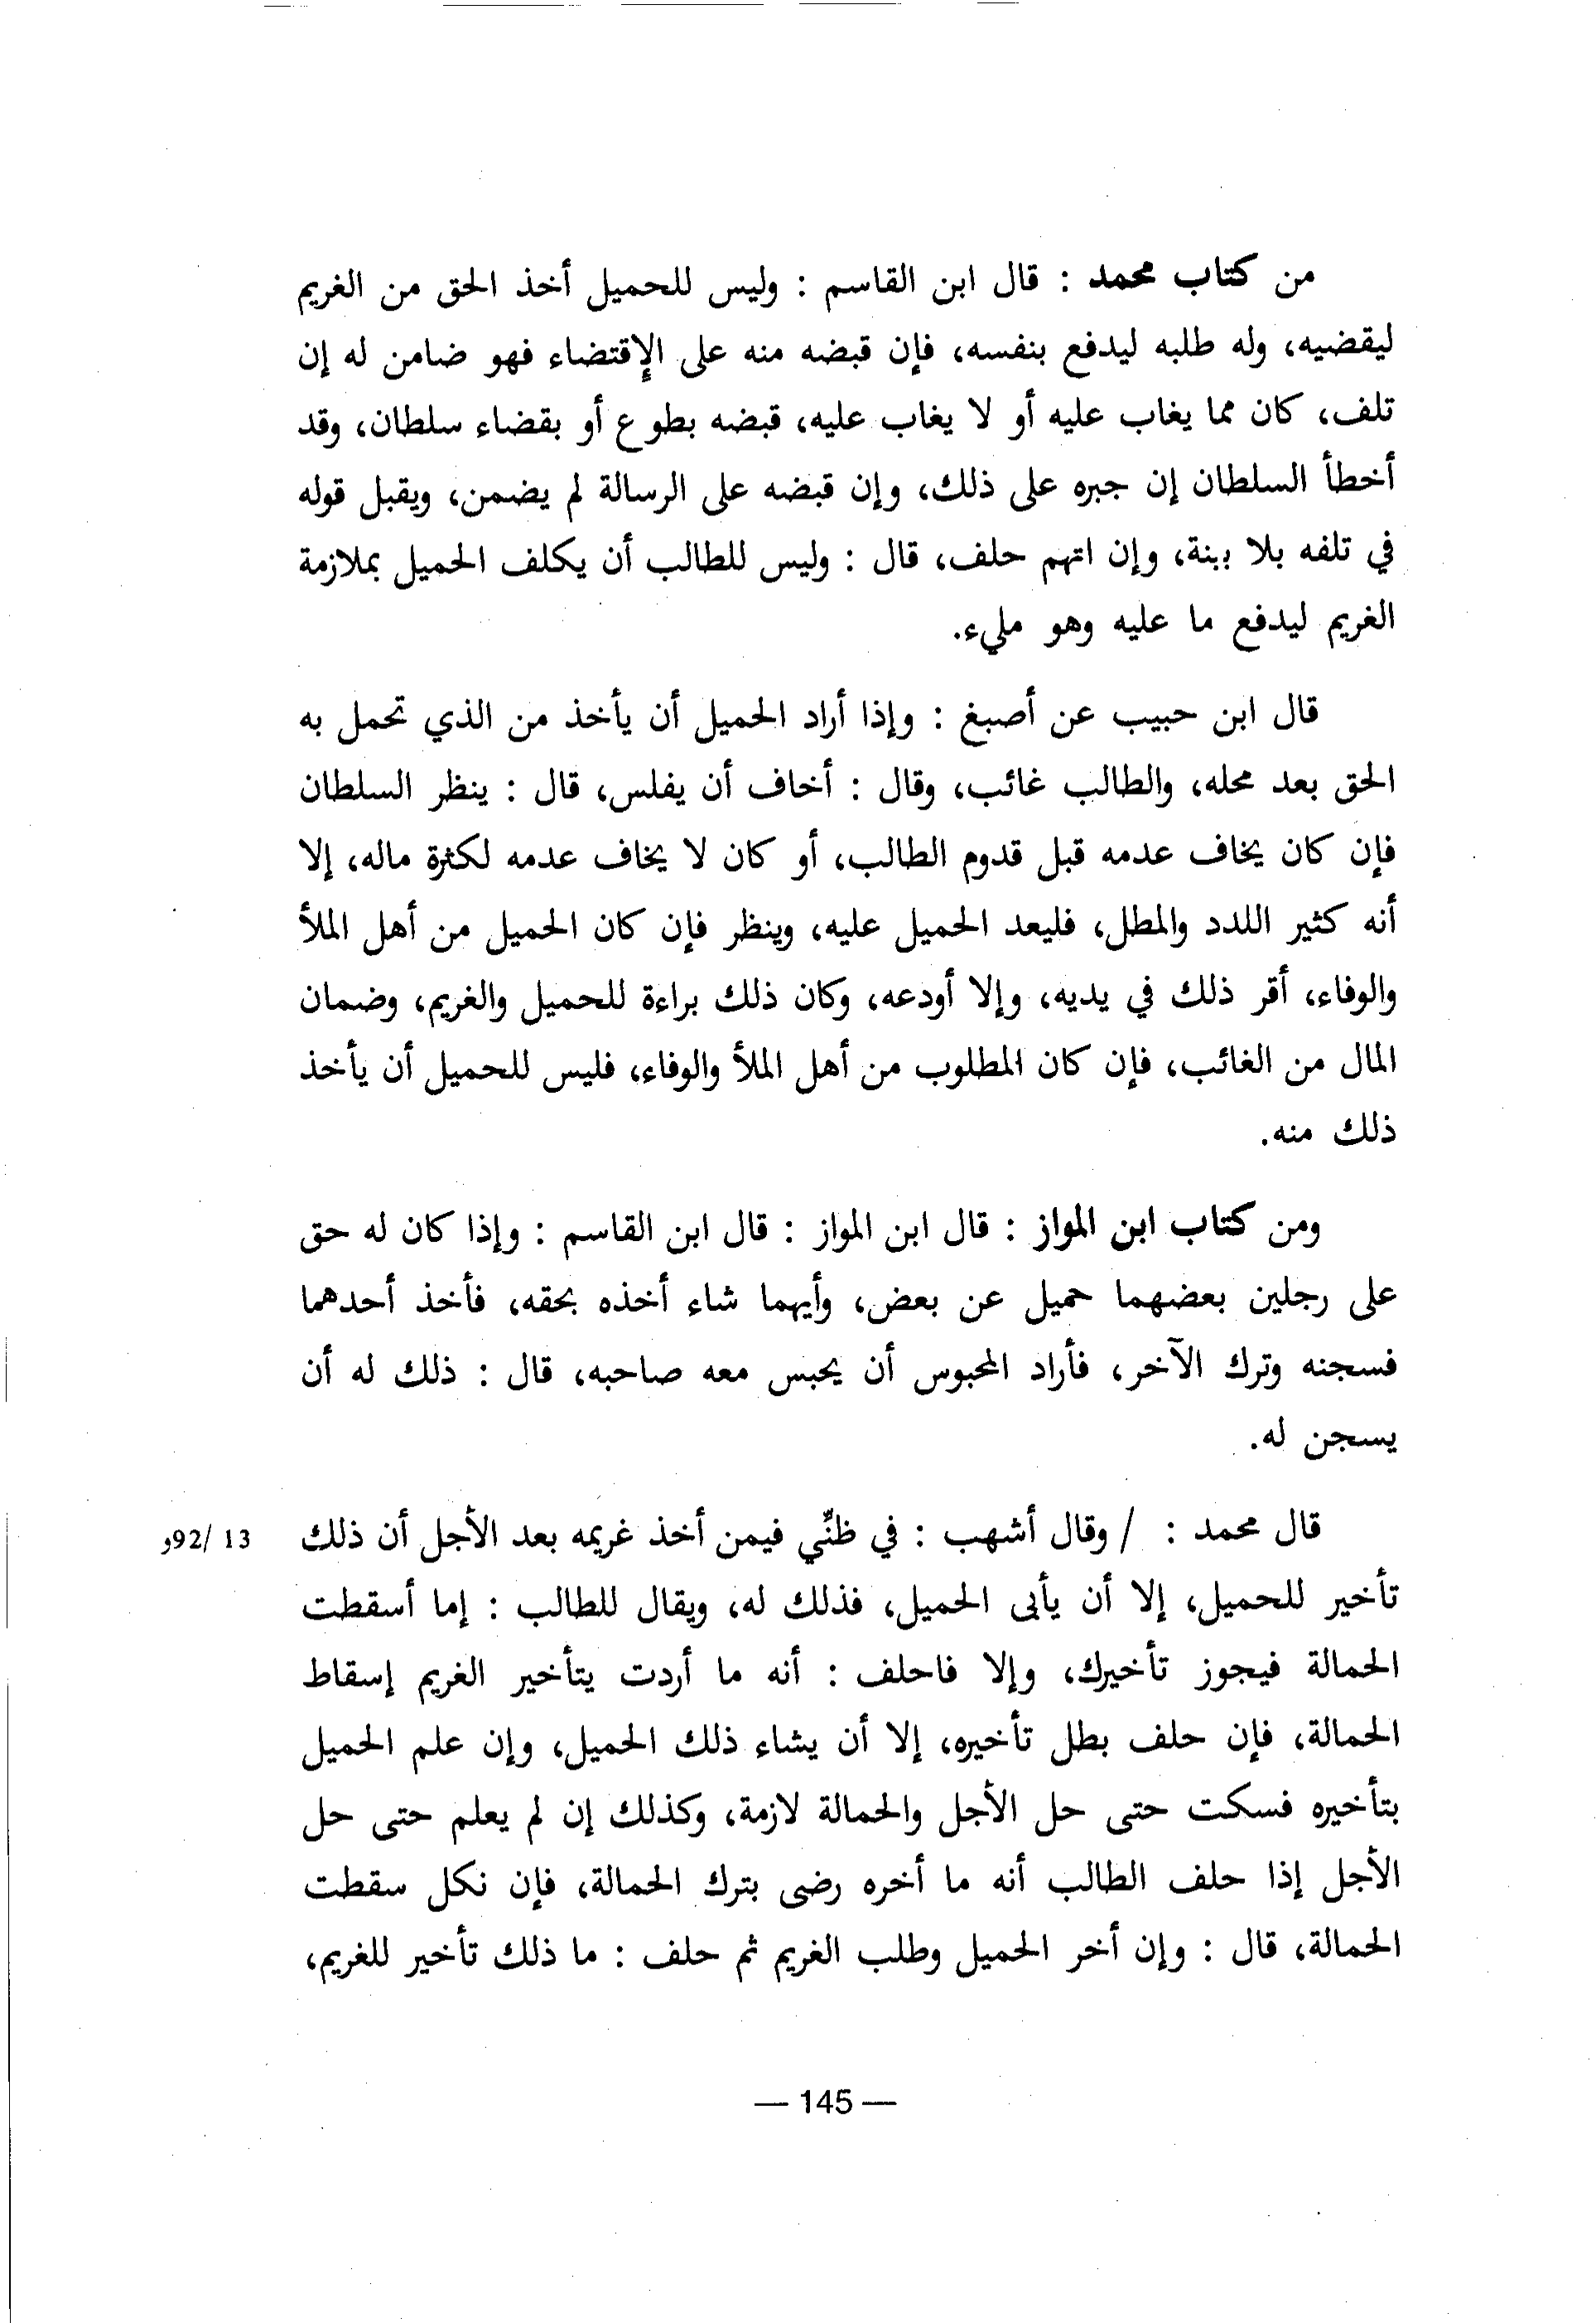 من كتاب محمد : قال ابن القاسم : وليس للحميل أخذ الحق من الغريم
ليقضيه، وله طلبه ليدفع بنفسه، فإن قبضه منه على الإقتضاء فهو ضامن له إن
تلف، كان مما يغاب عليه أو لا يغاب عليه، قبضه بطوع أو بقضاء سلطان، وقد
أخطأ السلطان إن جبره على ذلك، وإن قبضه على الرسالة لم يضمن، ويقبل قوله
في تلفه بلا بينة، وإن اتهم حلف، قال : وليس للطالب أن يكلف الحميل بملازمة
الغريم ليدفع ما عليه وهو مليء.
قال ابن حبيب عن أصبغ : وإذا أراد الحميل أن يأخذ من الذي تحمل به
الحق بعد محله، والطالب غائب، وقال : أخاف أن يفلس، قال : ينظر السلطان
فإن كان يخاف عدمه قبل قدوم الطالب، أو كان لا يخاف عدمه لكثرة ماله، إلا
أنه كثير اللدد والمطل، فليعد الحميل عليه، وينظر فإن كان الحميل من أهل الملأ
والوفاء، أقر ذلك في يديه، وإلا أودعه، وكان ذلك براءة للحميل والغريم، وضمان
المال من الغائب، فإن كان المطلوب من أهل الملأ والوفاء، فليس للحميل أن يأخذ
ذلك منه.
ومن كتاب ابن المواز : قال ابن المواز : قال ابن القاسم : وإذا كان له حق
على رجلين بعضهما حميل عن بعض، وأيهما شاء أخذه بحقه، فأخذ أحدهما
فسجنه وترك الآخر، فأراد المحبوس أن يحبس معه صاحبه، قال : ذلك له أن
يسجن له.
قال محمد : / وقال أشهب : في ظنِّي فيمن أخذ غريمه بعد الأجل أن ذلك
13 /92و
تأخير للحميل، إلا أن يأبى الحميل، فذلك له، ويقال للطالب : إما أسقطت
الحمالة فيجوز تأخيرك، وإلا فاحلف : أنه ما أردت يتأخير الغريم إسقاط
الحمالة، فإن حلف بطل تأخيره، إلا أن يشاء ذلك الحميل، وإن علم الحميل
بتأخيره فسكت حتى حل الأجل والحمالة لازمة، وكذلك إن لم يعلم حتى حل
الأجل إذا حلف الطالب أنه ما أخره رضى بترك الحمالة، فإن نكل سقطت
الحمالة، قال : وإن أخر الحميل وطلب الغريم ثم حلف : ما ذلك تأخير للغريم،
— 145 —